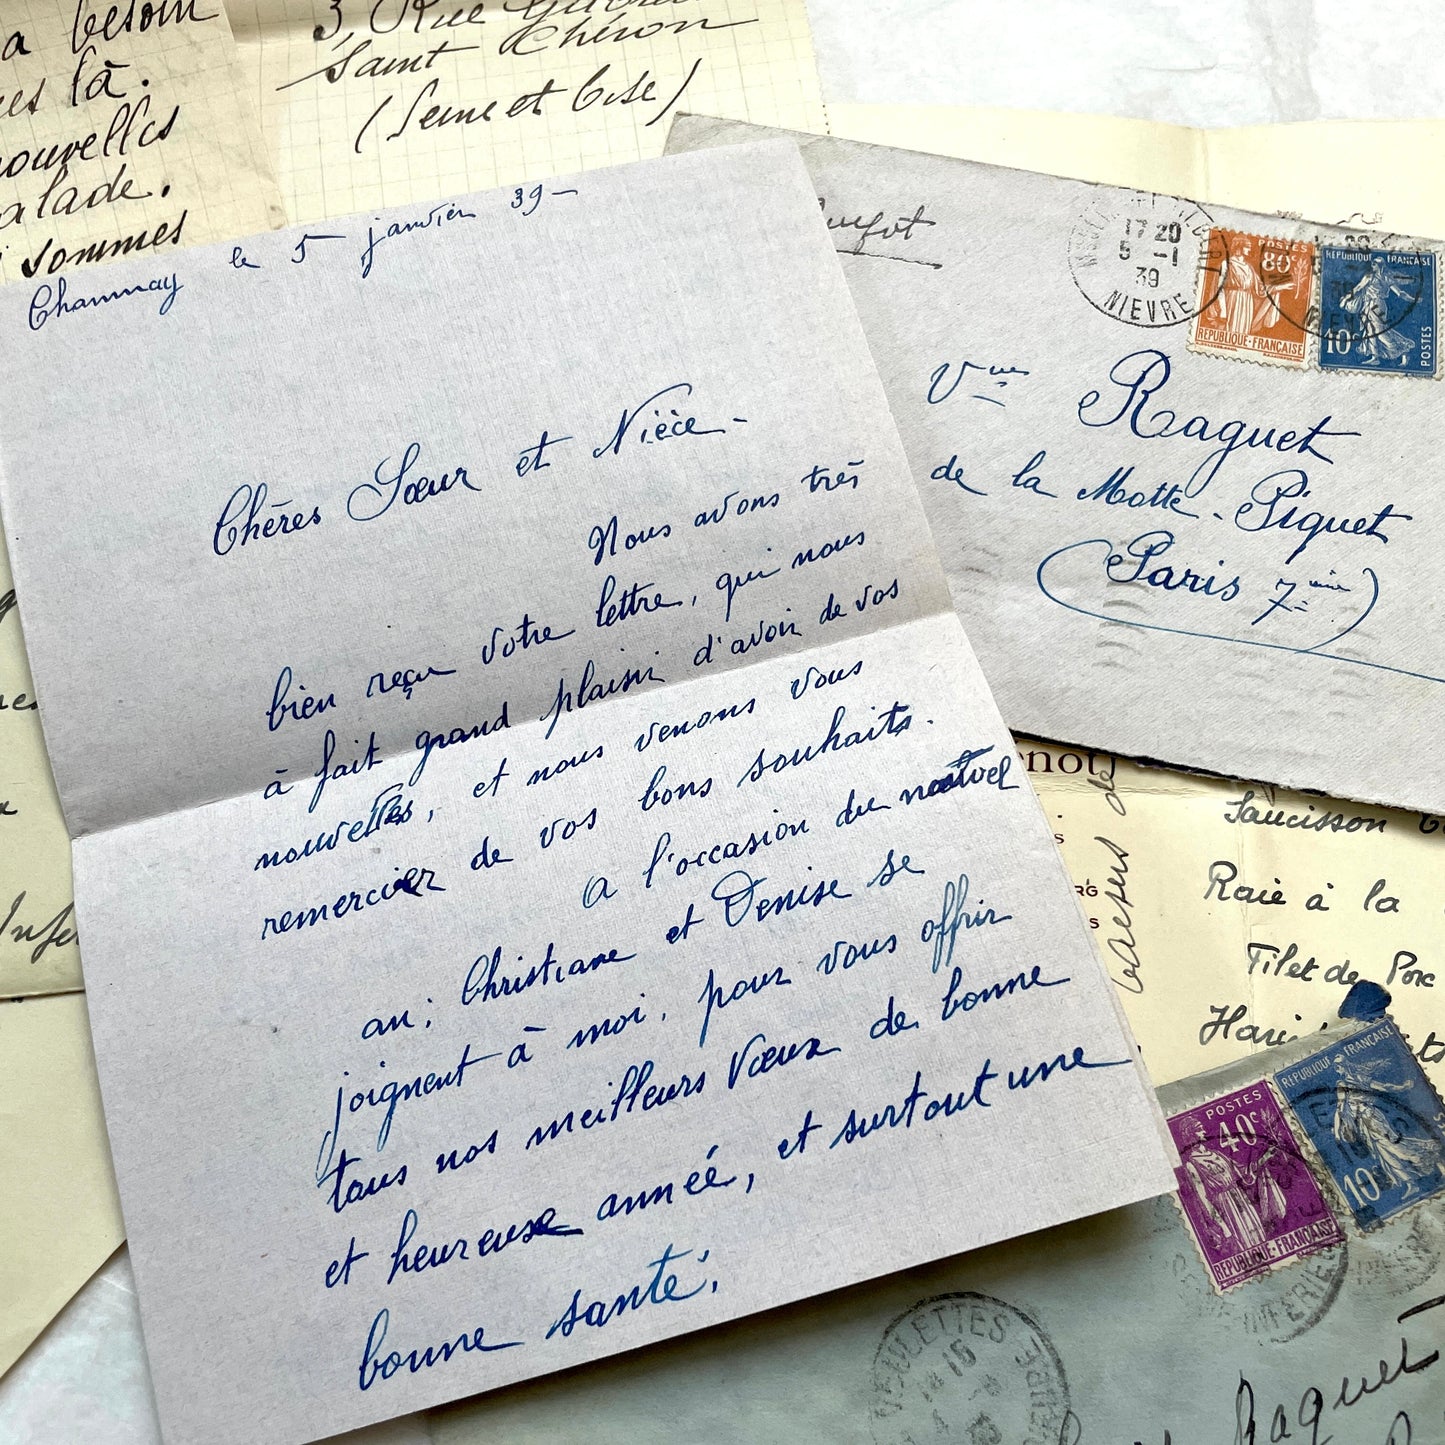 a besoin
là.
nouvelles
sommes
3, Rue
Saint Chéron
(Seine et Oise)
Channay le 5 janvier 39-
Chères Sœur et Nièce-
Nous avons très
bien reçu votre lettre, qui nous
à fait grand plaisir d'avoir de vos
nouvelles, et nous venons vous
remercier de vos bons souhaits.
A l'occasion du nouvel
an; Christiane et Denise se
joignent à moi, pour vous offrir
tous nos meilleurs Vœux de bonne
et heureuse année, et surtout une
bonne santé;
17 20
5 -1
39
NIEVRE
POSTES
80c
REPUBLIQUE-FRANÇAISE
REPUBLIQUE FRANÇAISE
10c
POSTES
Vve Raguet
de la Motte-Piquet
(Paris 7ème)
Saucisson
Raie à la
Filet de Porc
POSTES
40c
REPUBLIQUE-FRANÇAISE
REPUBLIQUE FRANÇAISE
10c
Raguet